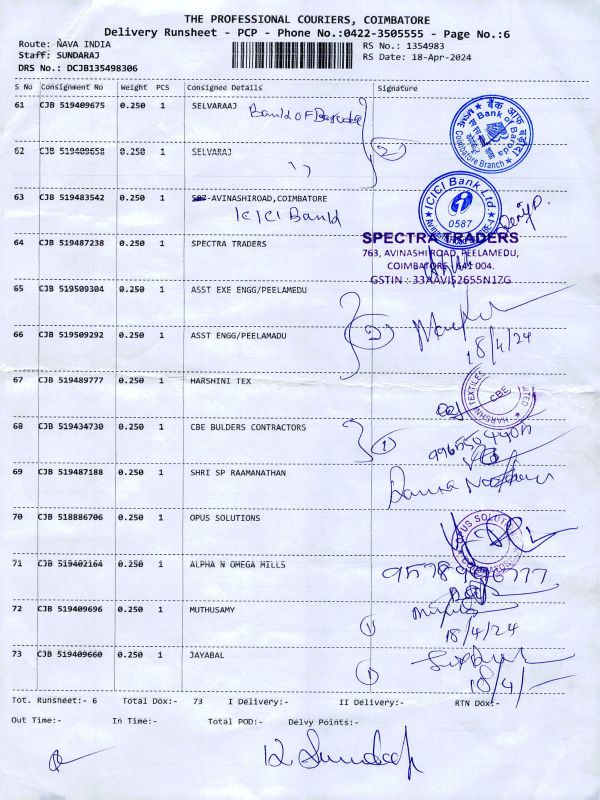 THE PROFESSIONAL COURIERS, COIMBATORE
Delivery Runsheet - PCP - Phone No.:0422-3505555 - Page No.:6
Route: NAVA INDIA
RS No.: 1354983
Staff: SUNDARAJ
RS Date: 18-Apr-2024
DRS No.: DCJB135498306
S No Consignment No Weight PCS Consignee Details Signature
61 CJB 519409675 0.250 1 SELVARAAJ
Bank OF Baroda
बैंक ऑफ़ बड़ौदा
Bank of Baroda
Coimbatore Branch
62 CJB 519409658 0.250 1 SELVARAJ
,, 2
63 CJB 519483542 0.250 1 587-AVINASHIROAD,COIMBATORE
ICICI Bank
ICICI Bank Ltd.
0587
64 CJB 519487238 0.250 1 SPECTRA TRADERS
SPECTRA TRADERS
763, AVINASHI ROAD, PEELAMEDU,
COIMBATORE - 641 004.
GSTIN : 33AAVFS2655N1ZG
65 CJB 519509304 0.250 1 ASST EXE ENGG/PEELAMEDU
66 CJB 519509292 0.250 1 ASST ENGG/PEELAMEDU
2
18/4/24
67 CJB 519489777 0.250 1 HARSHINI TEX
HARSHNI TEXTILES LIMITED
CBE
68 CJB 519434730 0.250 1 CBE BULDERS CONTRACTORS
1
69 CJB 519487188 0.250 1 SHRI SP RAAMANATHAN
70 CJB 518886706 0.250 1 OPUS SOLUTIONS
OPUS SOLU
71 CJB 519402164 0.250 1 ALPHA N OMEGA MILLS
72 CJB 519409696 0.250 1 MUTHUSAMY
1
18/4/24
73 CJB 519409660 0.250 1 JAYABAL
1
18/4/
Tot. Runsheet:- 6 Total Dox:- 73 I Delivery:- II Delivery:- RTN Dox:-
Out Time:- In Time:- Total POD:- Delvy Points:-